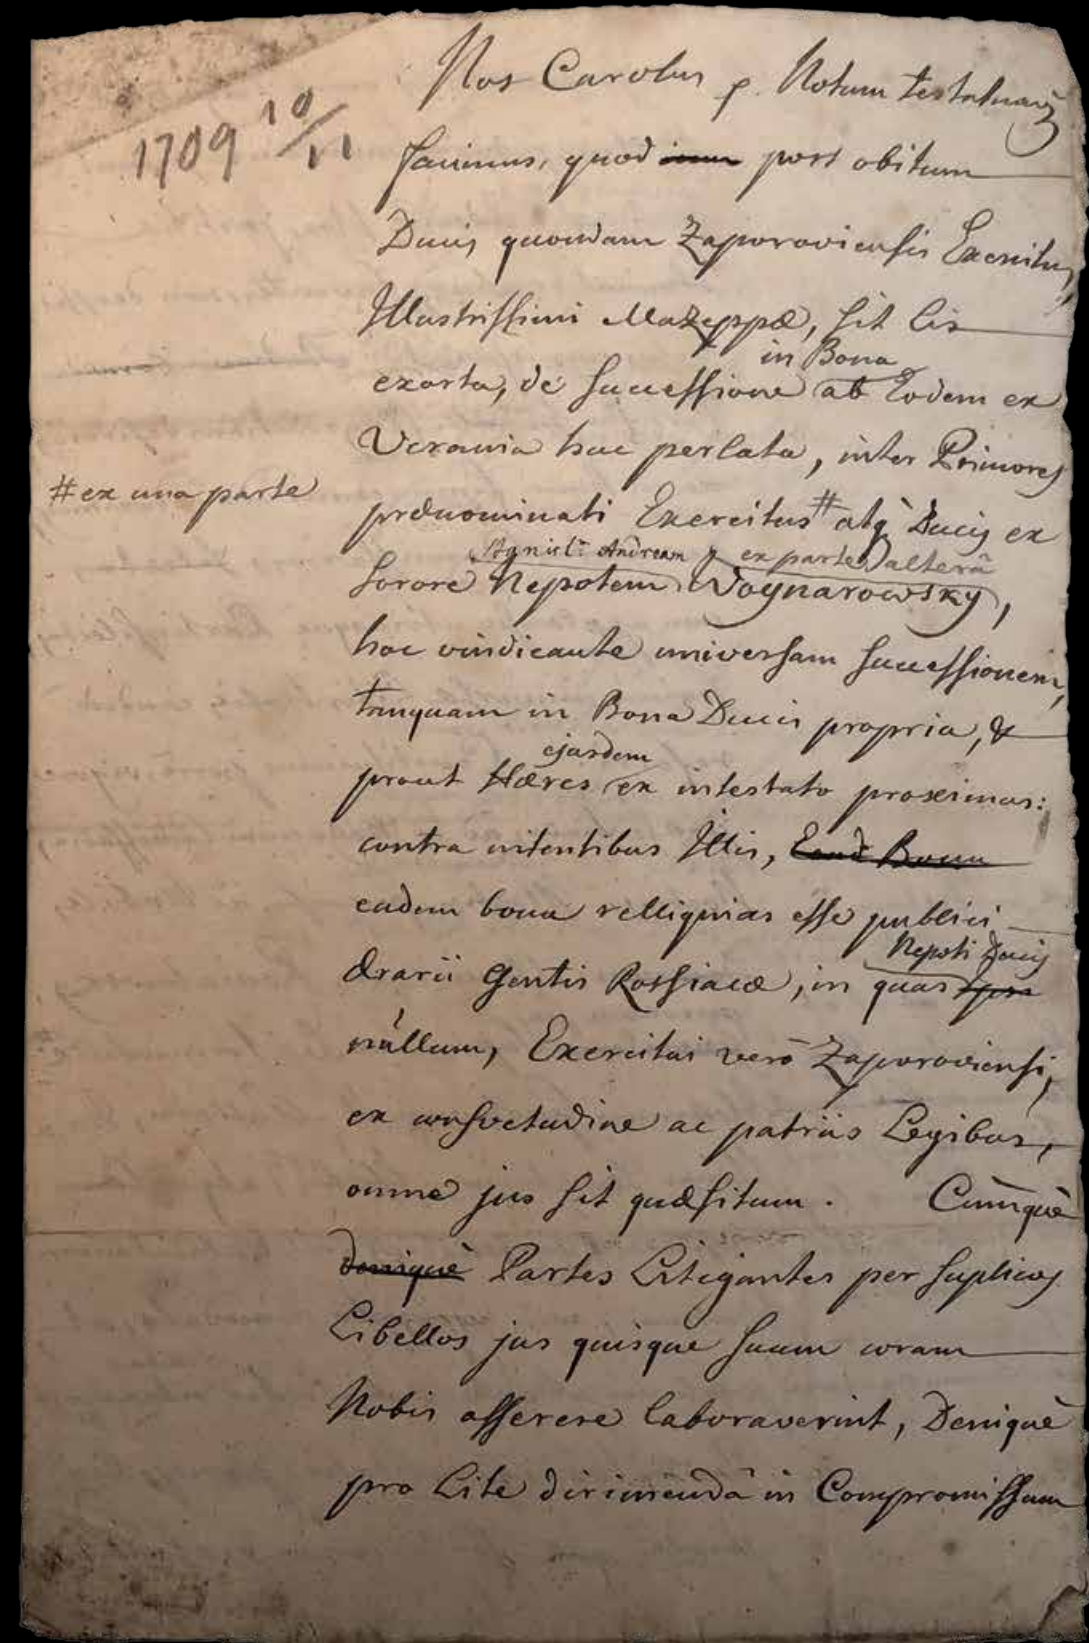 1709 10/11
Nos Carolus p. Notum testatumq
facimus, quod post obitum
Ducis quondam Zaporoviensis Exercitus,
Illustrissimi Mazeppæ, sit lis
in Bona
exorta, de successione ab Eodem ex
Ucrania huc perlata, inter Primores
# ex una parte
prænominati Exercitus # atq Ducis ex
Andream ex parte alterâ
sorore Nepotem Woynarowsky,
hoc vindicante universam successionem,
tanquam in Bona Ducis propria, &
ejusdem
prout Hæres ex intestato proximus:
contra nitentibus Illis, Ead Bona
eadem bona relliquias esse publici
Nepoti Ducis
Ærarii Gentis Rossiacæ, in quas
nullum, Exercitui verò Zaporoviensi,
ex consvetudine ac patriis Legibus,
omne jus sit quæsitum. Cumque
denique Partes Litigantes per suplices
Libellos jus quisque suum coram
Nobis asserere laboraverint, Denique
pro Lite dirimendâ in Compromissum